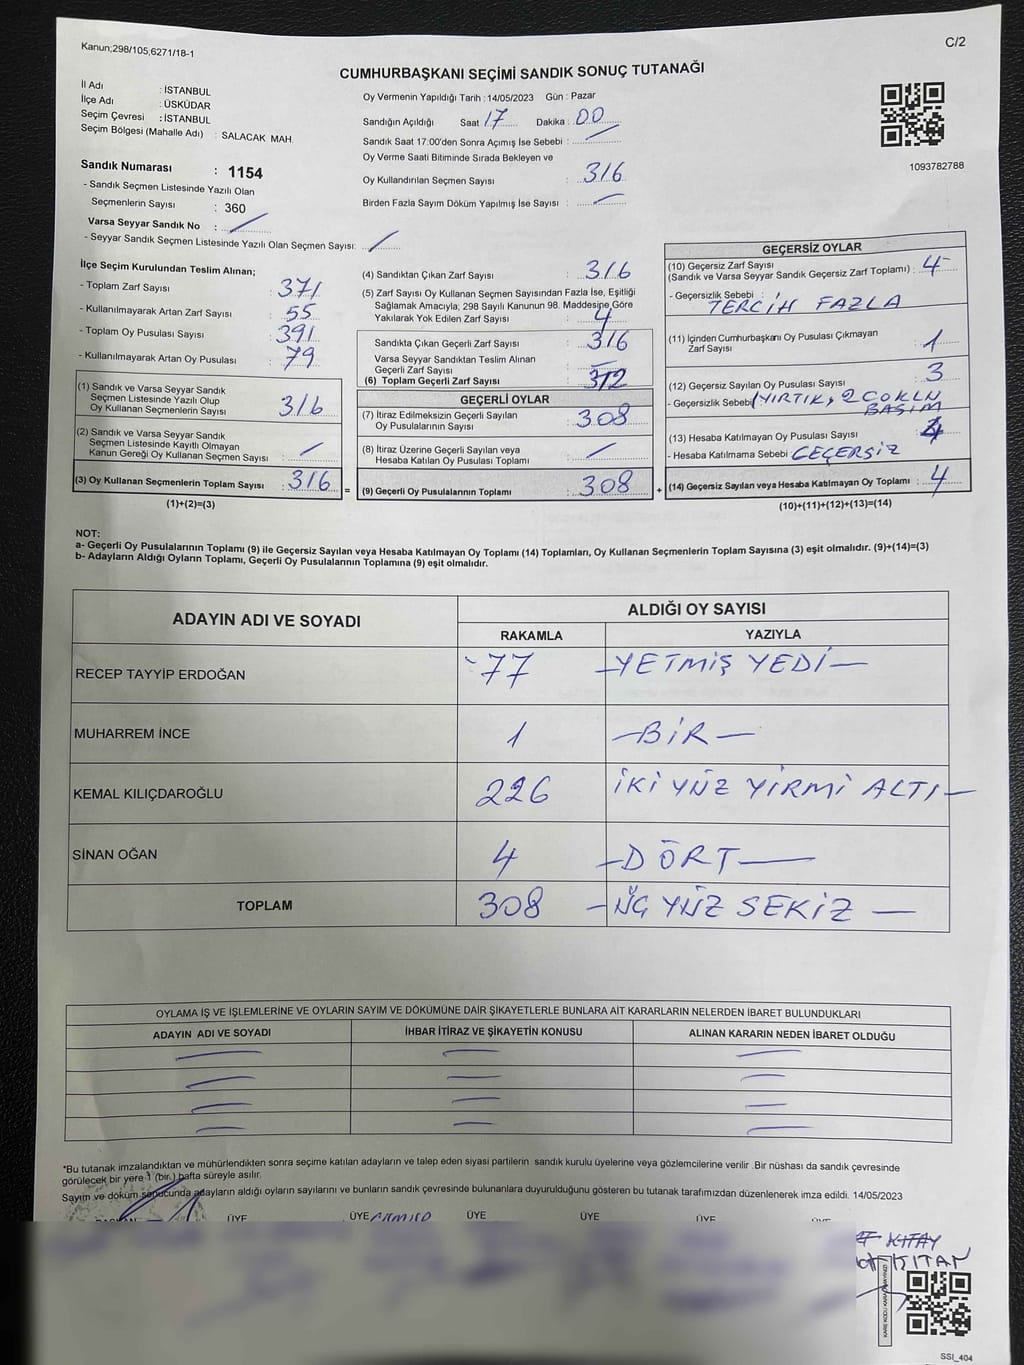 Kanun;298/105,6271/18-1
C/2
CUMHURBAŞKANI SEÇİMİ SANDIK SONUÇ TUTANAĞI
İl Adı : İSTANBUL
İlçe Adı : ÜSKÜDAR
Seçim Çevresi : İSTANBUL
Seçim Bölgesi (Mahalle Adı) : SALACAK MAH.
Sandık Numarası : 1154
- Sandık Seçmen Listesinde Yazılı Olan
Seçmenlerin Sayısı : 360
Varsa Seyyar Sandık No :
- Seyyar Sandık Seçmen Listesinde Yazılı Olan Seçmen Sayısı:
Oy Vermenin Yapıldığı Tarih : 14/05/2023 Gün : Pazar
Sandığın Açıldığı Saat 17 Dakika : 00
Sandık Saat 17:00'den Sonra Açımış İse Sebebi :
Oy Verme Saati Bitiminde Sırada Bekleyen ve
Oy Kullandırılan Seçmen Sayısı : 316
Birden Fazla Sayım Döküm Yapılmış İse Sayısı :
1093782788
İlçe Seçim Kurulundan Teslim Alınan;
- Toplam Zarf Sayısı : 371
- Kullanılmayarak Artan Zarf Sayısı : 55
- Toplam Oy Pusulası Sayısı : 391
- Kullanılmayarak Artan Oy Pusulası : 79
(1) Sandık ve Varsa Seyyar Sandık
Seçmen Listesinde Yazılı Olup
Oy Kullanan Seçmenlerin Sayısı : 316
(2) Sandık ve Varsa Seyyar Sandık
Seçmen Listesinde Kayıtlı Olmayan
Kanun Gereği Oy Kullanan Seçmen Sayısı :
(3) Oy Kullanan Seçmenlerin Toplam Sayısı : 316 =
(1)+(2)=(3)
(4) Sandıktan Çıkan Zarf Sayısı : 316
(5) Zarf Sayısı Oy Kullanan Seçmen Sayısından Fazla İse, Eşitliği
Sağlamak Amacıyla; 298 Sayılı Kanunun 98. Maddesine Göre
Yakılarak Yok Edilen Zarf Sayısı : 4
Sandıkta Çıkan Geçerli Zarf Sayısı : 316
Varsa Seyyar Sandıktan Teslim Alınan
Geçerli Zarf Sayısı
(6) Toplam Geçerli Zarf Sayısı : 312
GEÇERLİ OYLAR
(7) İtiraz Edilmeksizin Geçerli Sayılan
Oy Pusulalarının Sayısı : 308
(8) İtiraz Üzerine Geçerli Sayılan veya
Hesaba Katılan Oy Pusulası Toplamı :
(9) Geçerli Oy Pusulalarının Toplamı : 308 +
GEÇERSİZ OYLAR
(10) Geçersiz Zarf Sayısı
(Sandık ve Varsa Seyyar Sandık Geçersiz Zarf Toplamı) : 4
- Geçersizlik Sebebi :
TERCİH FAZLA
(11) İçinden Cumhurbaşkanı Oy Pusulası Çıkmayan
Zarf Sayısı : 1
(12) Geçersiz Sayılan Oy Pusulası Sayısı : 3
- Geçersizlik Sebebi 1 YIRTIK, 2 ÇOKLN
BASIM
(13) Hesaba Katılmayan Oy Pusulası Sayısı :
- Hesaba Katılmama Sebebi GEÇERSİZ
(14) Geçersiz Sayılan veya Hesaba Katılmayan Oy Toplamı : 4
(10)+(11)+(12)+(13)=(14)
NOT:
a- Geçerli Oy Pusulalarının Toplamı (9) ile Geçersiz Sayılan veya Hesaba Katılmayan Oy Toplamı (14) Toplamları, Oy Kullanan Seçmenlerin Toplam Sayısına (3) eşit olmalıdır. (9)+(14)=(3)
b- Adayların Aldığı Oyların Toplamı, Geçerli Oy Pusulalarının Toplamına (9) eşit olmalıdır.
ADAYIN ADI VE SOYADI ALDIĞI OY SAYISI
RAKAMLA YAZIYLA
RECEP TAYYİP ERDOĞAN 77 -YETMİŞ YEDİ-
MUHARREM İNCE 1 -BİR-
KEMAL KILIÇDAROĞLU 226 İKİ YÜZ YİRMİ ALTI-
SİNAN OĞAN 4 -DÖRT-
TOPLAM 308 -ÜÇ YÜZ SEKİZ-
OYLAMA İŞ VE İŞLEMLERİNE VE OYLARIN SAYIM VE DÖKÜMÜNE DAİR ŞİKAYETLERLE BUNLARA AİT KARARLARIN NELERDEN İBARET BULUNDUKLARI
ADAYIN ADI VE SOYADI İHBAR İTİRAZ VE ŞİKAYETİN KONUSU ALINAN KARARIN NEDEN İBARET OLDUĞU
*Bu tutanak imzalandıktan ve mühürlendikten sonra seçime katılan adayların ve talep eden siyasi partilerin sandık kurulu üyelerine veya gözlemcilerine verilir .Bir nüshası da sandık çevresinde
görülecek bir yere 1 (bir.) hafta süreyle asılır.
Sayım ve döküm sonucunda adayların aldığı oyların sayılarını ve bunların sandık çevresinde bulunanlara duyurulduğunu gösteren bu tutanak tarafımızdan düzenlenerek imza edildi. 14/05/2023
BAŞKAN ÜYE ÜYE ÜYE ÜYE ÜYE ÜYE
KITAY
KITAN
SSI_404